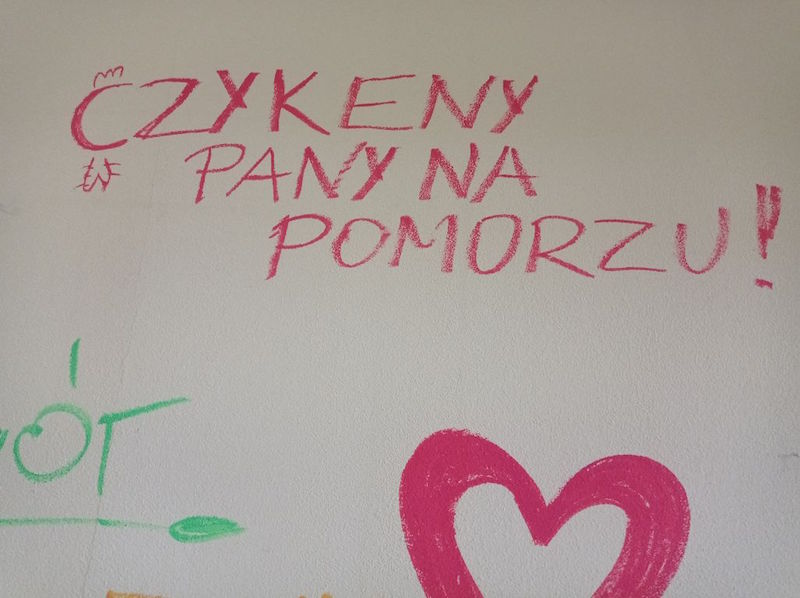 CZYKENY
PANY NA
POMORZU!
ÓT